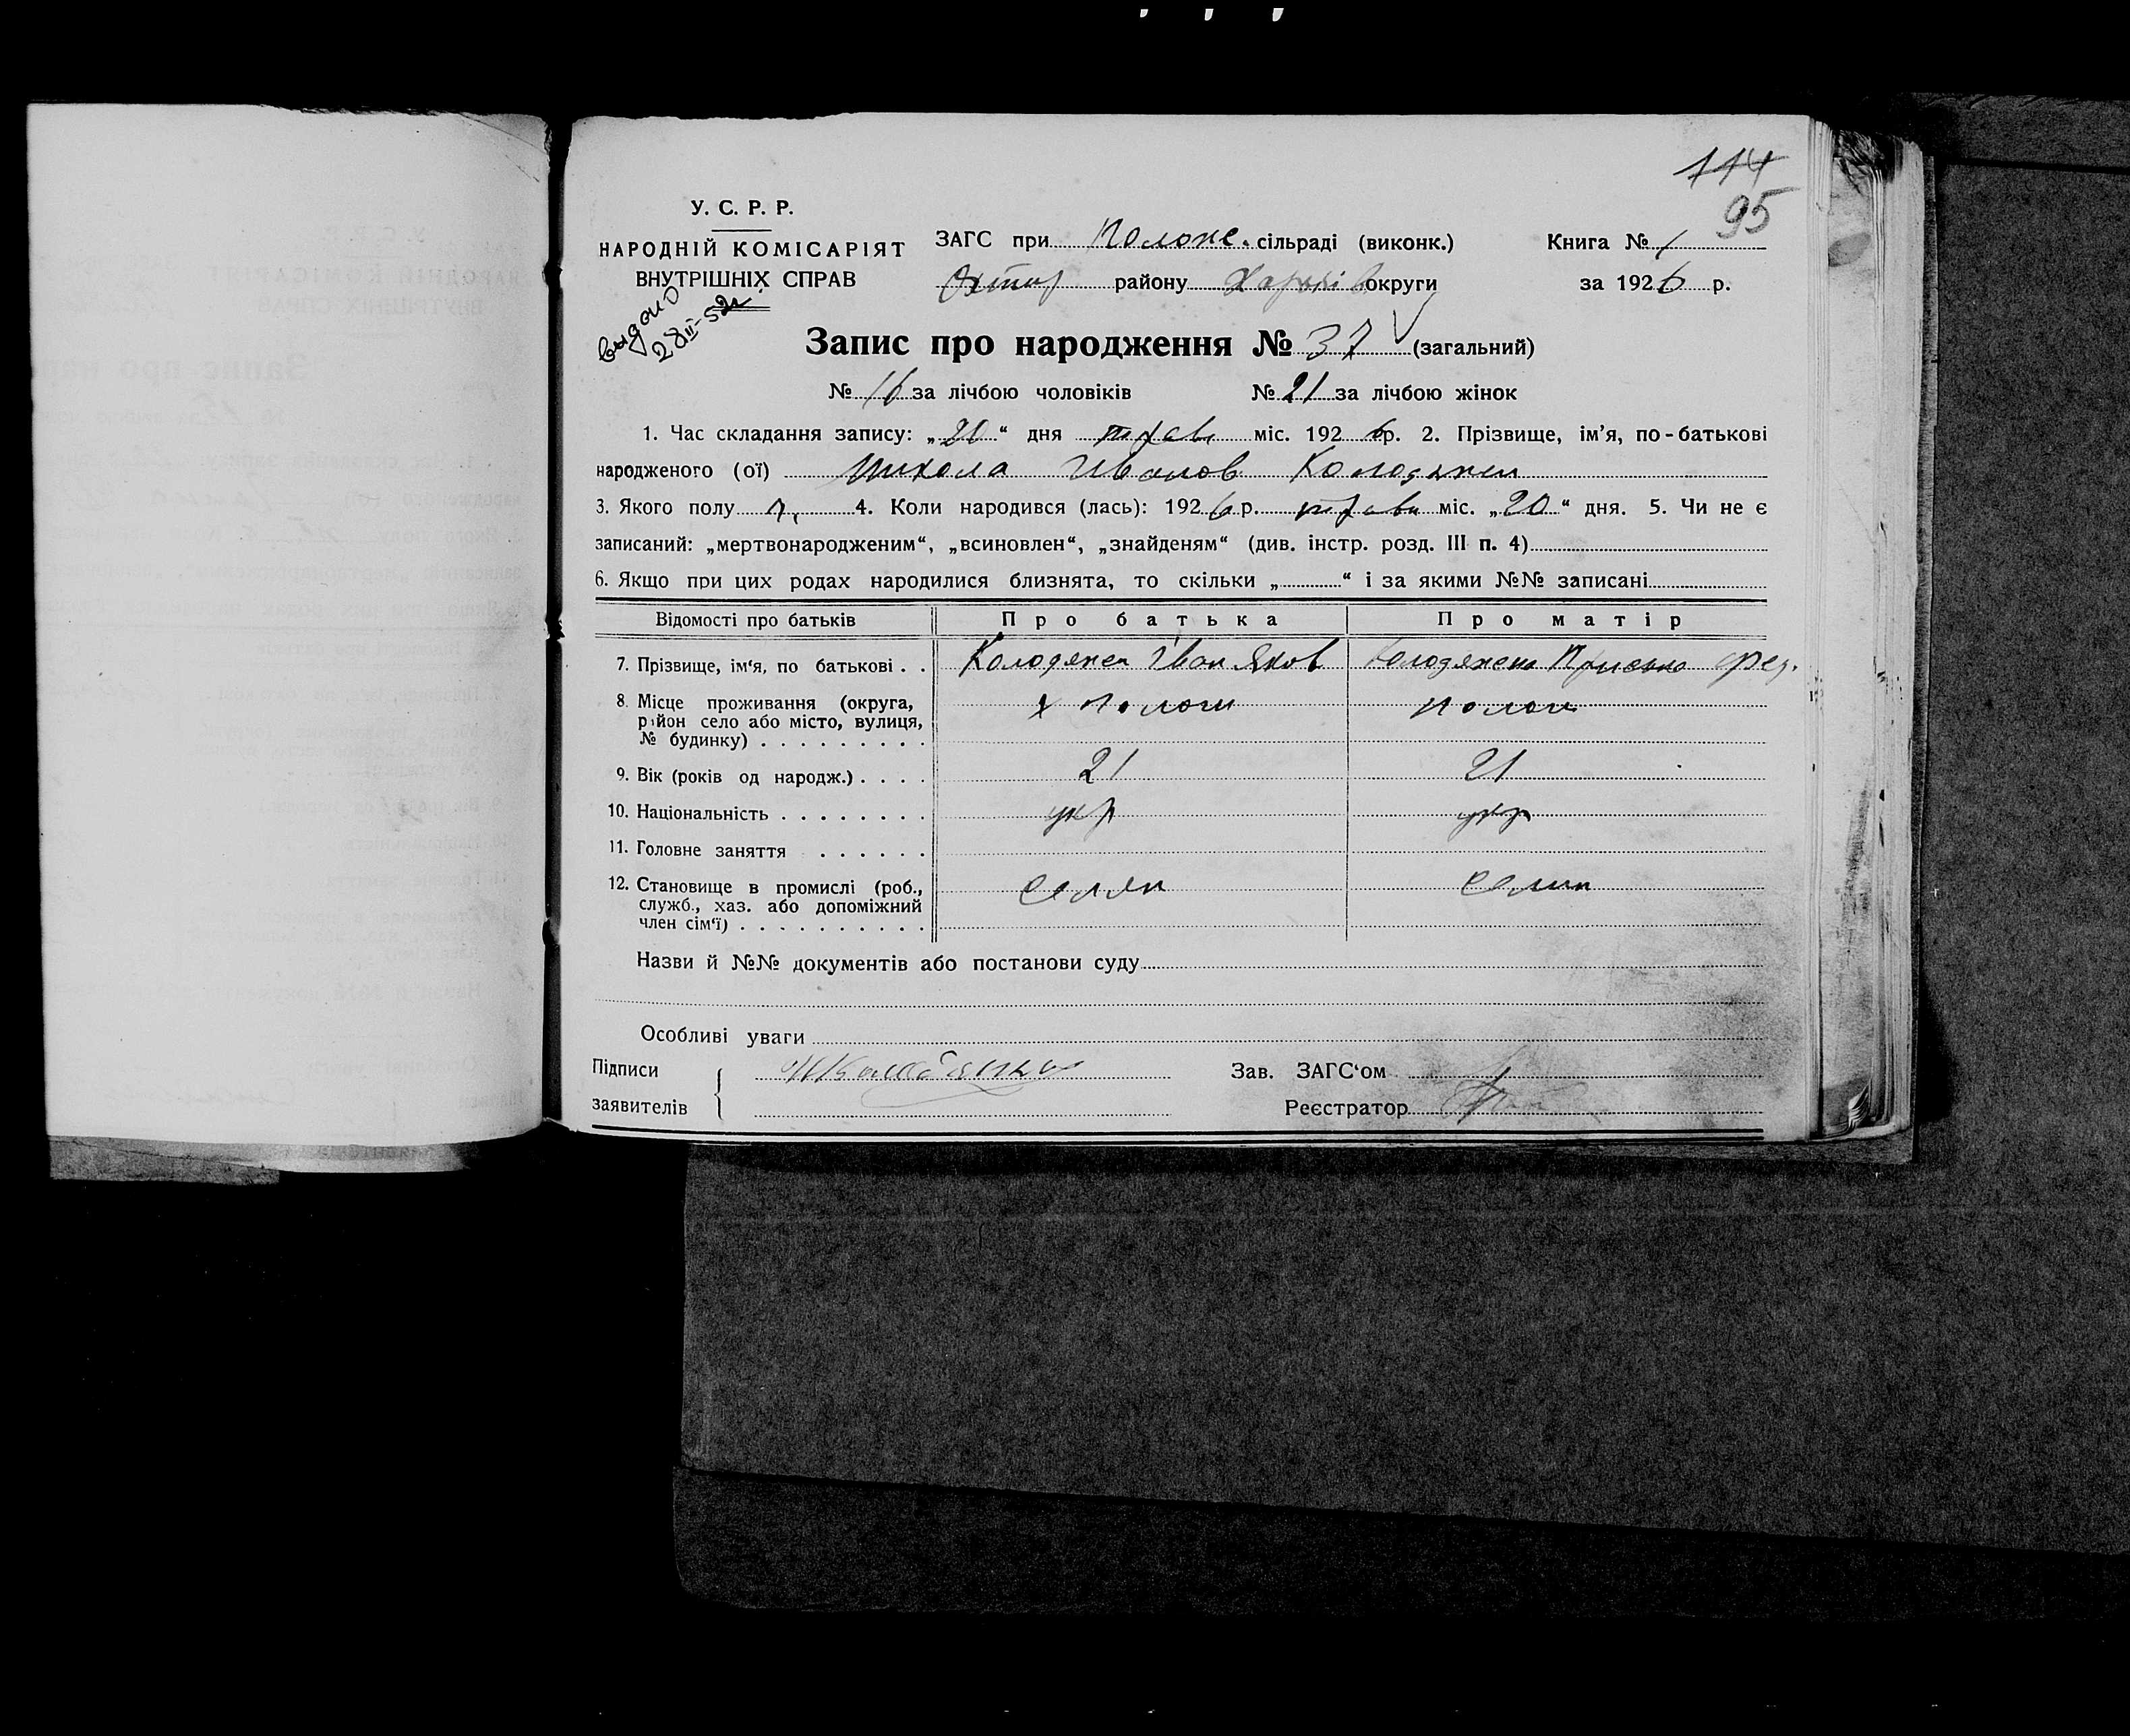 114
95
У. С. Р. Р.
НАРОДНІЙ КОМІСАРІЯТ
ВНУТРІШНІХ СПРАВ
видано
28/III-52г
ЗАГС при сільраді (виконк.)
Охтир району Харків округи
Книга № 1
за 1926 р.
Запис про народження № 37 (загальний)
№ 16 за лічбою чоловіків № 21 за лічбою жінок
1. Час складання запису: „20“ дня трав міс. 1926 р. 2. Прізвище, ім’я, по-батькові
народженого (ої) Микола Иванов
3. Якого полу ч. 4. Коли народився (лась): 1926 р. трав міс. „20“ дня. 5. Чи не є
записаний: „мертвонародженим“, „всиновлен“, „знайденям“ (див. інстр. розд. III п. 4)
6. Якщо при цих родах народилися близнята, то скільки „ “ і за якими №№ записані
Відомості про батьків Про батька Про матір
7. Прізвище, ім‘я, по батькові . . Іван Яков
8. Місце проживання (округа,
район село або місто, вулиця,
№ будинку) . . . . . . . . .
9. Вік (років од народж.) . . . . 21 21
10. Національність . . . . . . . . укр укр
11. Головне заняття . . . . . .
12. Становище в промислі (роб., селян селян
служб., хаз. або допоміжний
член сім‘ї) . . . . . . . . . .
Назви й №№ документів або постанови суду
Особливі уваги
Підписи
заявителів
Зав. ЗАГС‘ом
Реєстратор